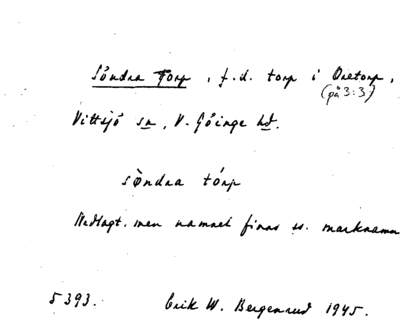 Söndra Torp, f.d. torp i Oretorp,
(på 3:3)
Vittsjö sn, V. Göinge hd.
sö̀ndra tórp
Nedlagt. men namnet finns ss. marknamn
5393. Erik W. Bergenrud 1945.